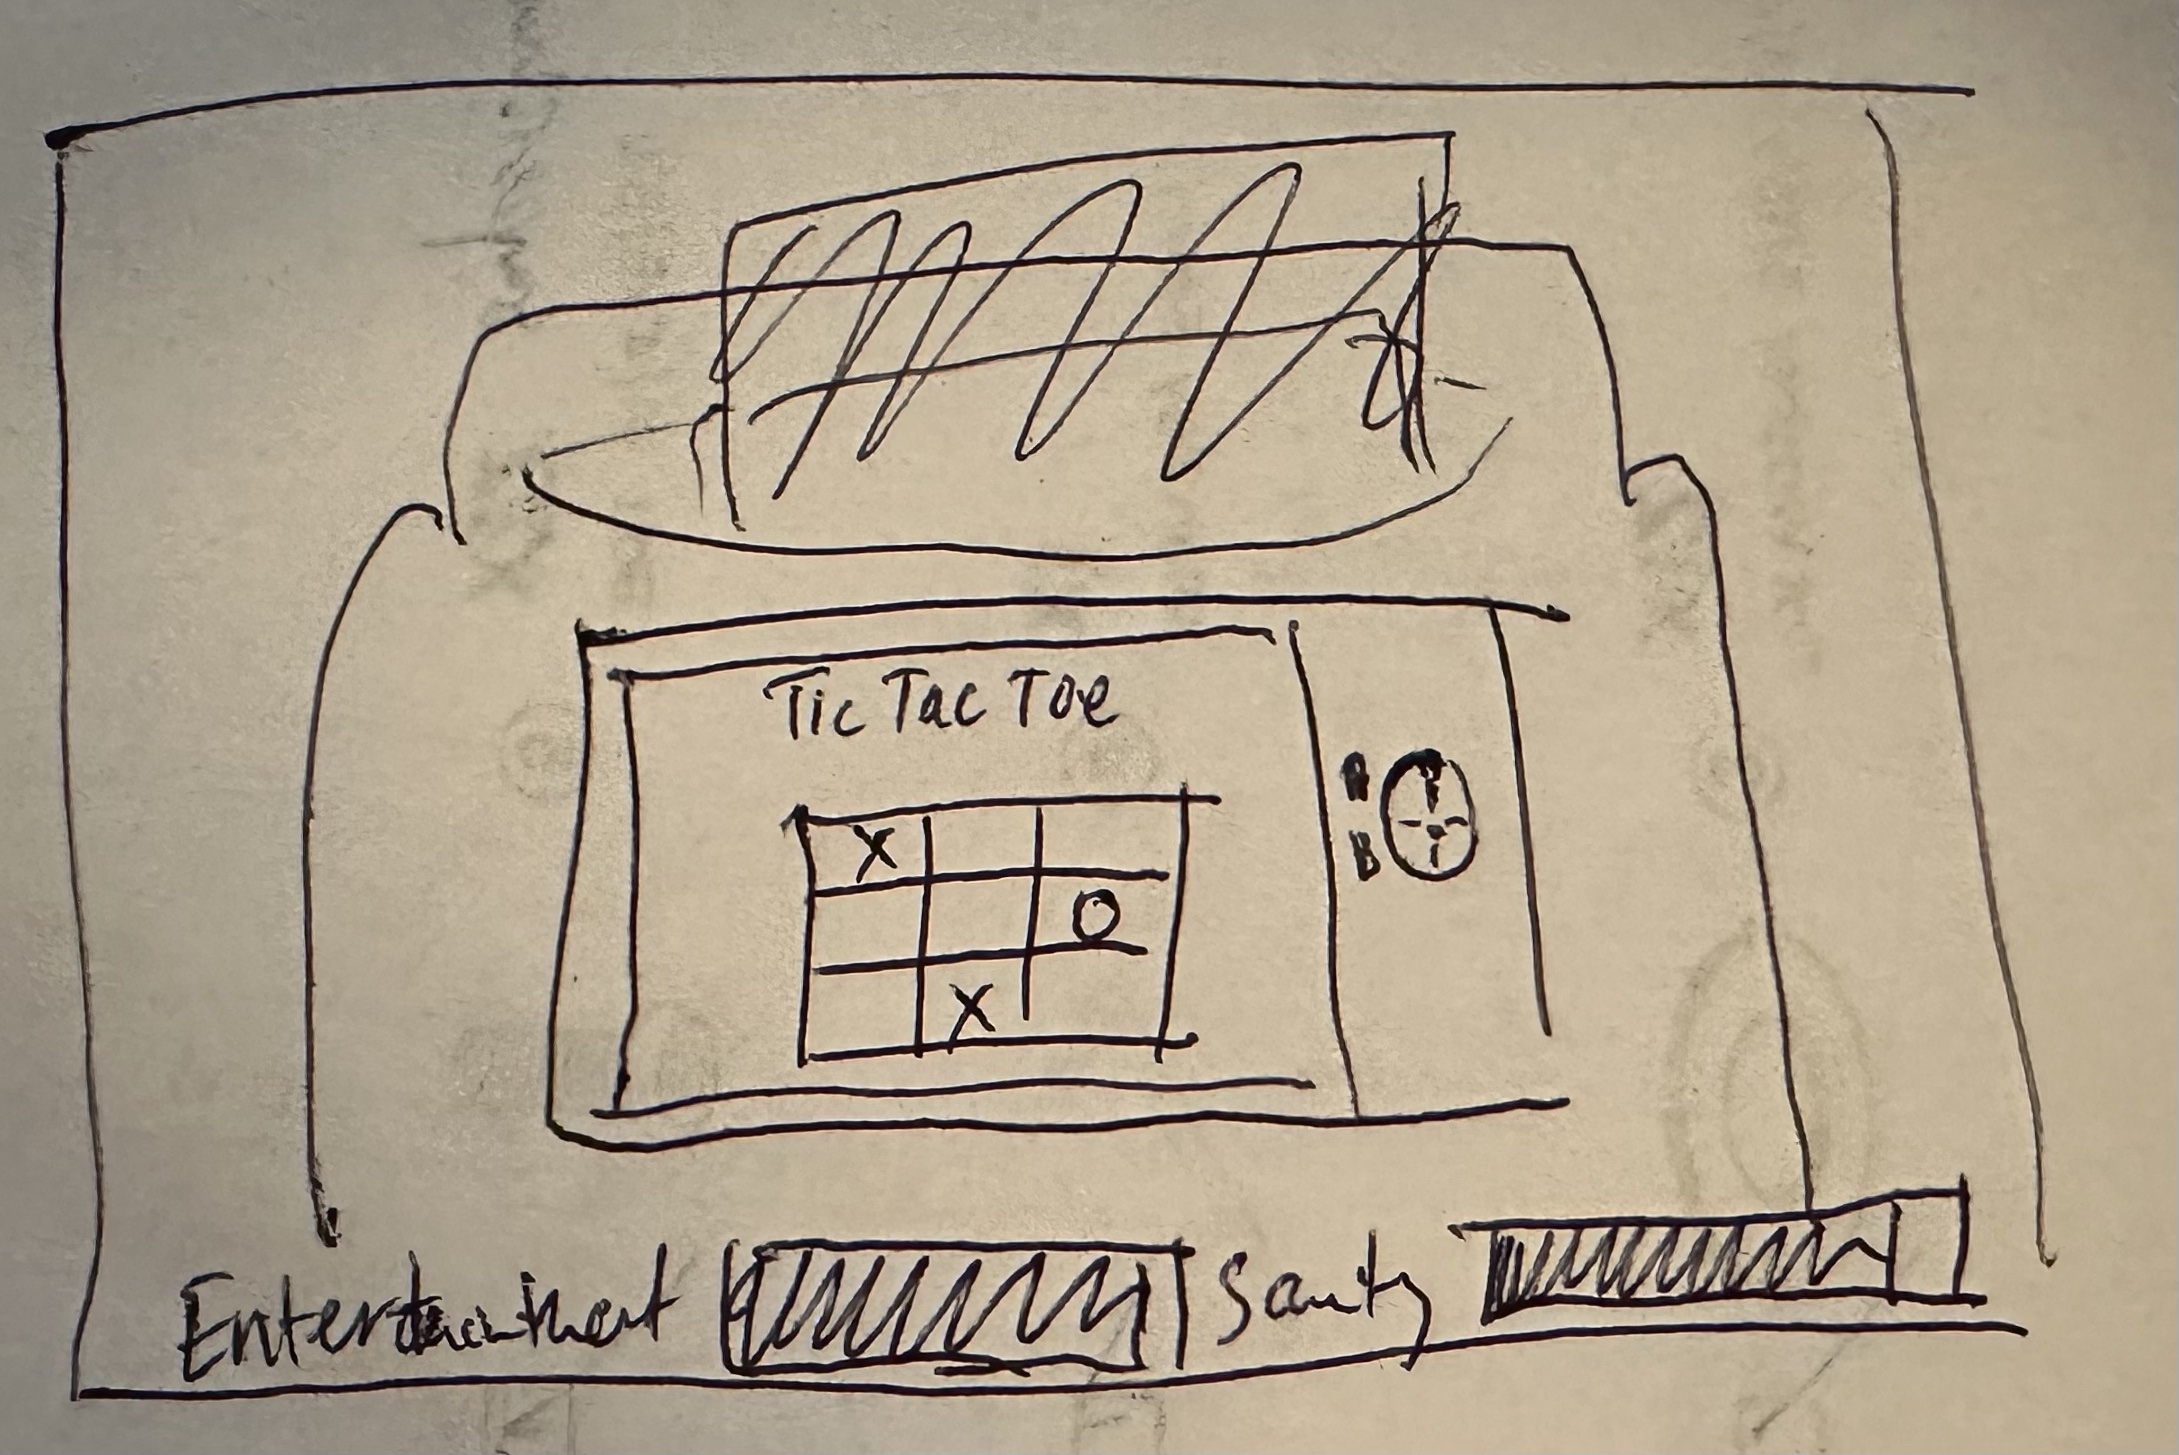 Tic Tac Toe
X
O
X
A
B
Entertainment
Sanity